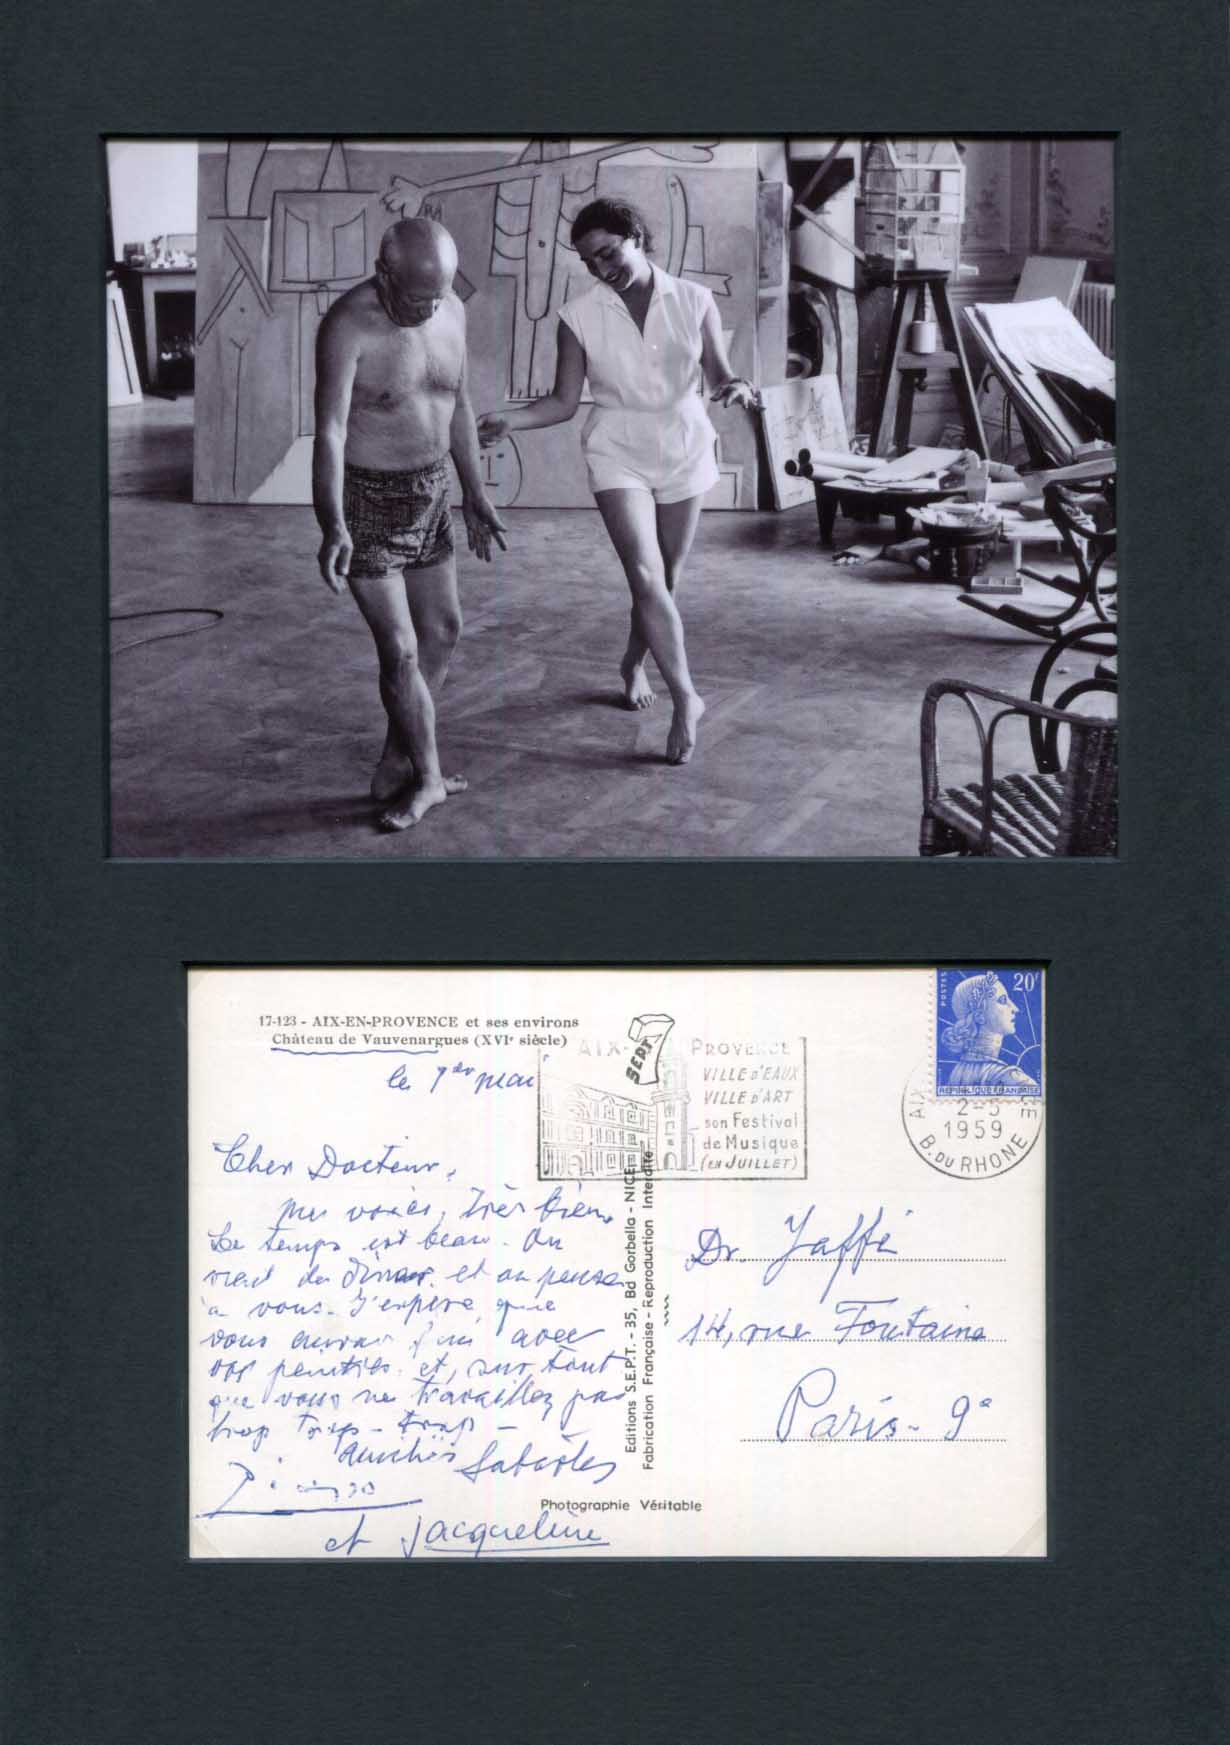 17-123 - AIX-EN-PROVENCE et ses environs
Château de Vauvenargues (XVIᵉ siècle)
le 1er mai
Cher Docteur,
très bien.
Le temps est beau. On
vient de dîner et on pense
à vous. J'espère que
vous avec
vos et, surtout
que vous ne travaillez pas
trop trop - trop -
Amitiés Sabartés
Picasso
et Jacqueline
SEPT
Editions S.E.P.T. - 35, Bd Gorbella - NICE
Fabrication Française - Reproduction Interdite
Photographie Véritable
AIX- PROVENCE
VILLE D'EAUX
VILLE D'ART
son Festival
de Musique
(EN JUILLET)
POSTES
20F
REPUBLIQUE FRANÇAISE
AIX
2-5
1959
B. DU RHONE
Dr. Jaffé
14, rue Fontaine
Paris - 9e